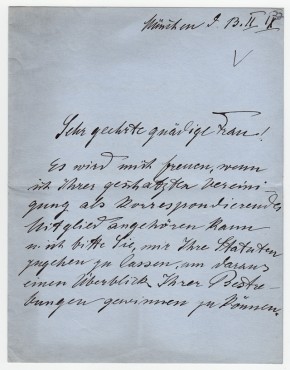 München d. 13. II.
Sehr geehrte gnädige Frau!
Es wird mich freuen, wenn
ich Ihrer geschätzten Vereini-
gung als korrespondierendes
Mitglied angehören kann
u. ich bitte Sie, mir Ihre Statuten
zugehen zu lassen, um daraus
einen Überblick Ihrer Bestre-
bungen gewinnen zu können.